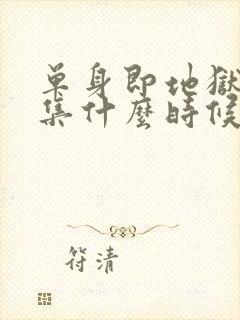 單身即地獄
集什麼時候
符清